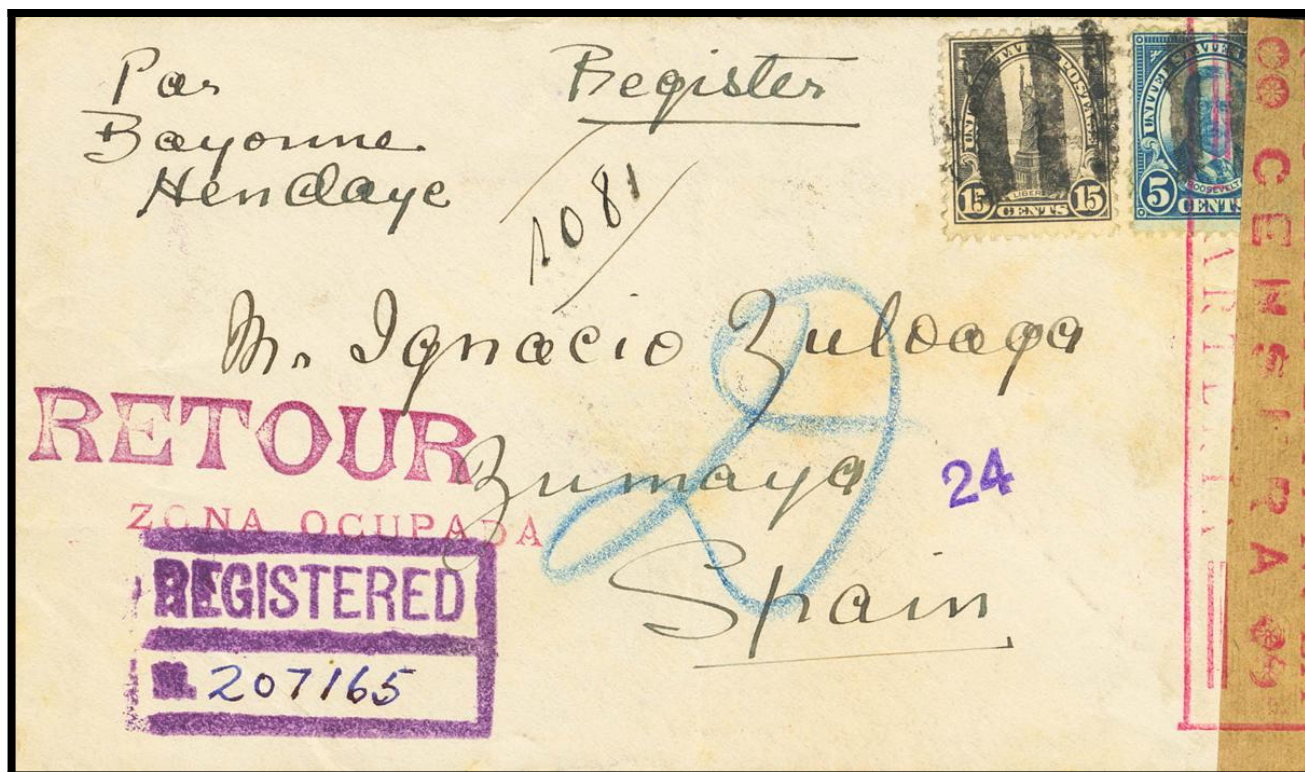 Par
Bayonne
Hendaye
Register
1081
UNITED STATES POSTAGE
LIBERTY
15 CENTS 15
UNITED STATES
ROOSEVELT
5 CENTS
Mr. Ignacio Zuloaga
Zumaya
Spain
RETOUR
ZONA OCUPADA
24
REGISTERED
207165
CENSURA